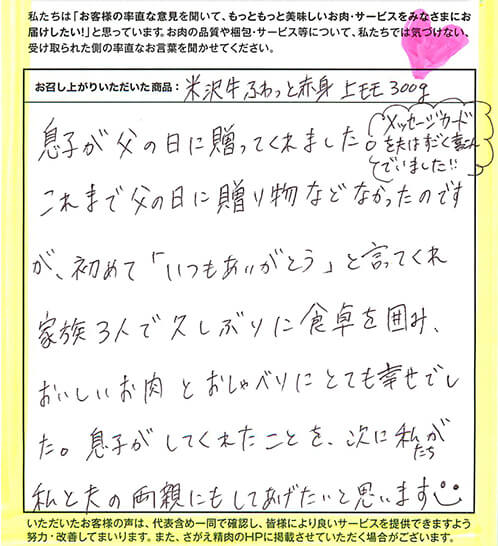 私たちは「お客様の率直な意見を聞いて、もっともっと美味しいお肉・サービスをみなさまにお
届けしたい!」と思っています。お肉の品質や梱包・サービス等について、私たちでは気づけない、
受け取られた側の率直なお言葉を聞かせてください。
お召し上がりいただいた商品: 米沢牛ふわっと赤身 上モモ 300g
息子が父の日に贈ってくれました。
メッセージカード
を夫はすごく喜こん
でいました!!
これまで父の日に贈り物などなかったのです
が、初めて「いつもありがとう」と言ってくれ
家族3人で久しぶりに食卓を囲み、
おいしいお肉とおしゃべりにとても幸せでし
た。息子がしてくれたことを、次に私たちが
私と夫の両親にもしてあげたいと思います
いただいたお客様の声は、代表含め一同で確認し、皆様により良いサービスを提供できますよう
努力・改善してまいります。また、さがえ精肉のHPに掲載させていただく場合がございます。